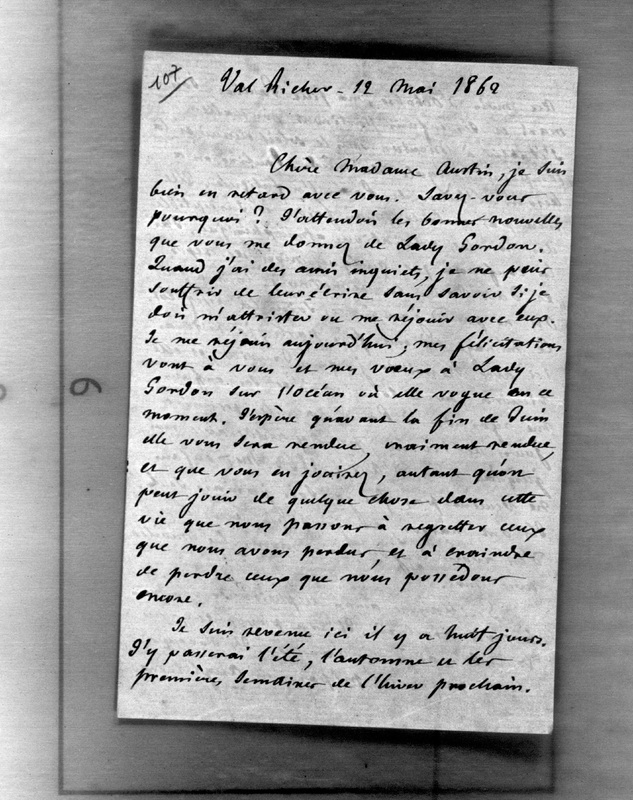 107
Val Richer - 12 mai 1862
Chère Madame Austin, je suis
bien en retard avec vous. Savez-vous
pourquoi ? J'attendois les bonnes nouvelles
que vous me donnez de Lady Gordon.
Quand j'ai des amis inquiets, je ne puis
souffrir de leur écrire sans savoir si je
dois m'attrister ou me réjouir avec eux.
Je me réjouis aujourd'hui; mes félicitations
vont à vous et mes voeux à Lady
Gordon sur l'océan où elle vogue en ce
moment. J'espère qu'avant la fin de Juin
elle vous sera rendue, vraiment rendue,
et que vous en jouirez, autant qu'on
peut jouir de quelque chose dans cette
vie que nous passons à regretter ceux
que nous avons perdus et à craindre
de perdre ceux que nous possédons
encore.
Je suis revenu ici il y a huit jours.
J'y passerai l'été, l'automne et les
premières semaines de l'hiver prochain.
6